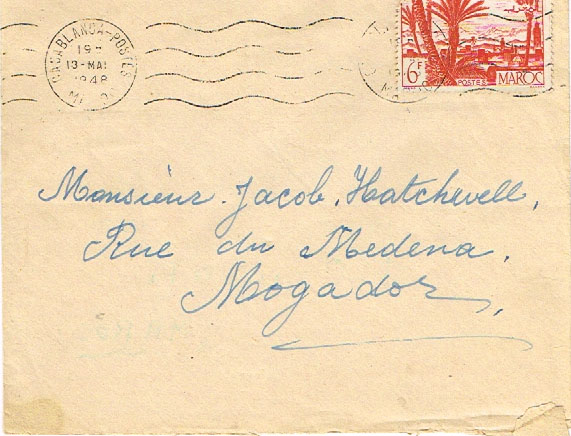 CASABLANCA-POSTES
19H
13-MAI
1948
6F
POSTES
MAROC
Monsieur. Jacob. Hatchwell,
Rue du Medena.
Mogador,